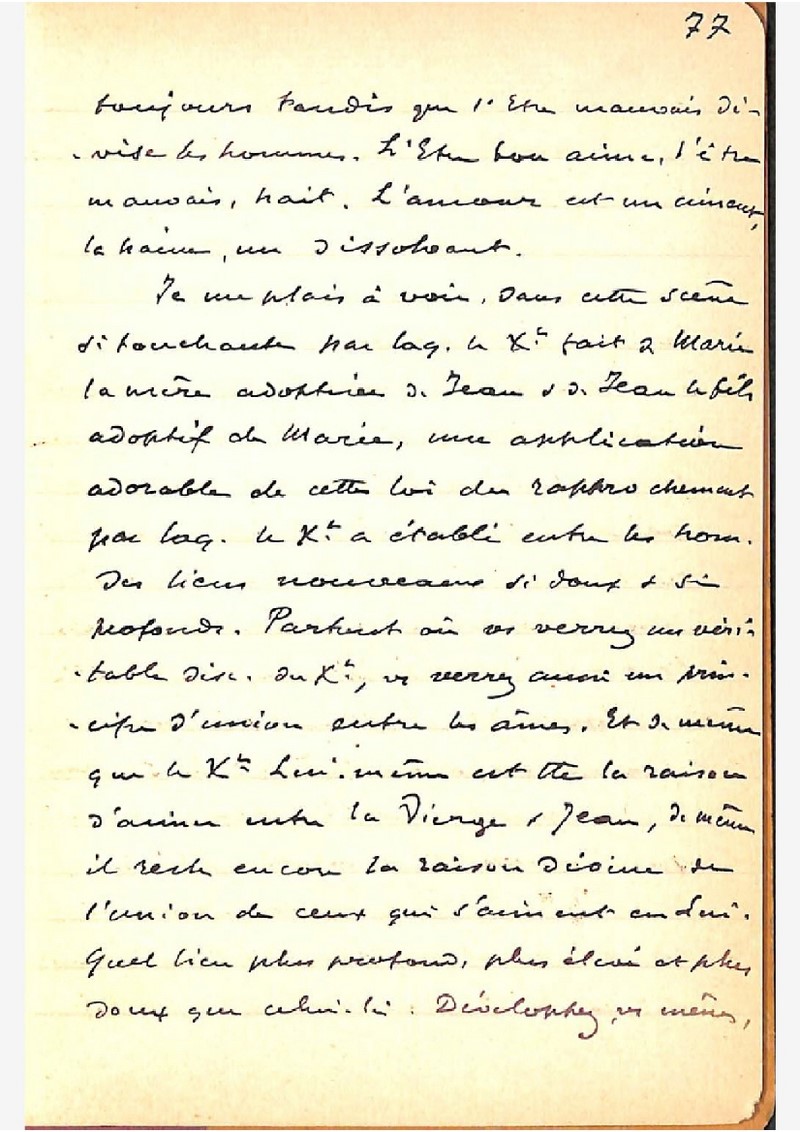 77
toujours tandis que l'Etre mauvais di-
-vise les hommes. L'Etre bon aime, l'être
mauvais, hait. L'amour est un ciment,
la haine, un dissolvant.
Je me plais à voir, dans cette scène
si touchante par laq. le Xt fait de Marie
la mère adoptive de Jean & de Jean le fils
adoptif de Marie, une application
adorable de cette loi du rapprochement
par laq. le Xt a établi entre les hom.
des liens nouveaux si doux & si
profonds. Partout où vs verrez un véri-
-table disc. du Xt, vs verrez aussi un prin-
-cipe d'union entre les âmes. Et de même
que le Xt Lui-même est tte la raison
d'aimer entre la Vierge & Jean, de même
il reste encore la raison divine de
l'union de ceux qui s'aiment en Lui.
Quel lien plus profond, plus élevé et plus
doux que celui-là. Développez, vs mêmes,